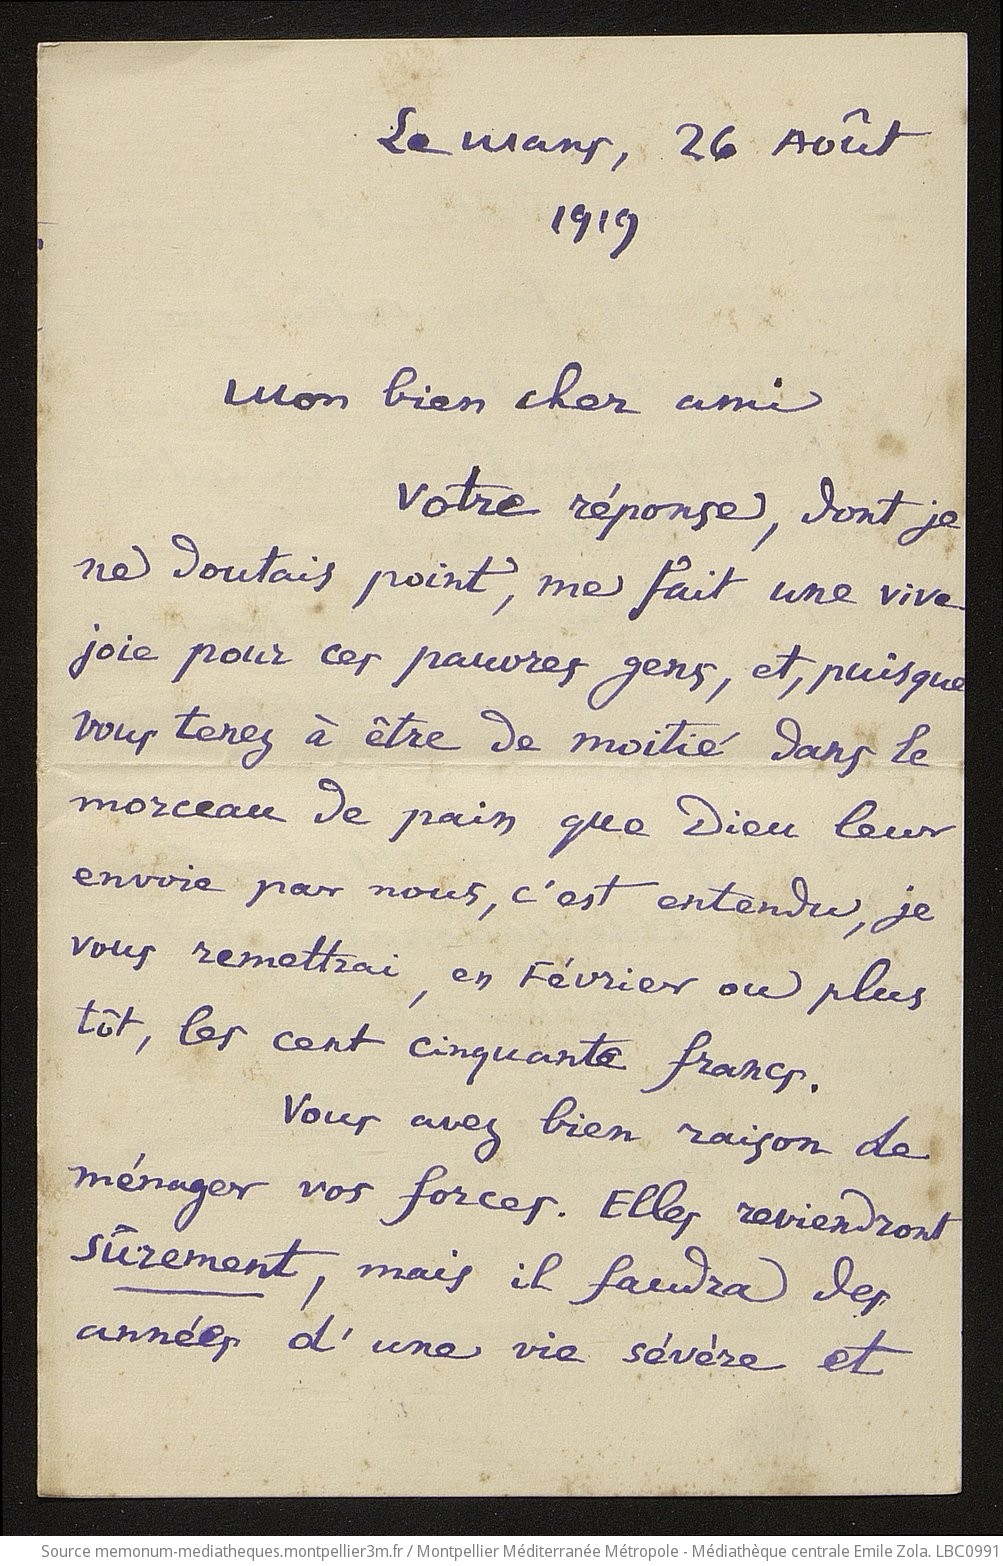 Le Mans, 26 Août
1919
Mon bien cher ami
Votre réponse, dont je
ne doutais point, me fait une vive
joie pour ces pauvres gens, et, puisque
vous tenez à être de moitié dans le
morceau de pain que Dieu leur
envoie par nous, c'est entendu, je
vous remettrai, en Février ou plus
tôt, les cent cinquante francs.
Vous avez bien raison de
ménager vos forces. Elles reviendront
sûrement, mais il faudra des
années d'une vie sévère et
Source memonum-mediatheques.montpellier3m.fr / Montpellier Méditerranée Métropole - Médiathèque centrale Emile Zola. LBC0991